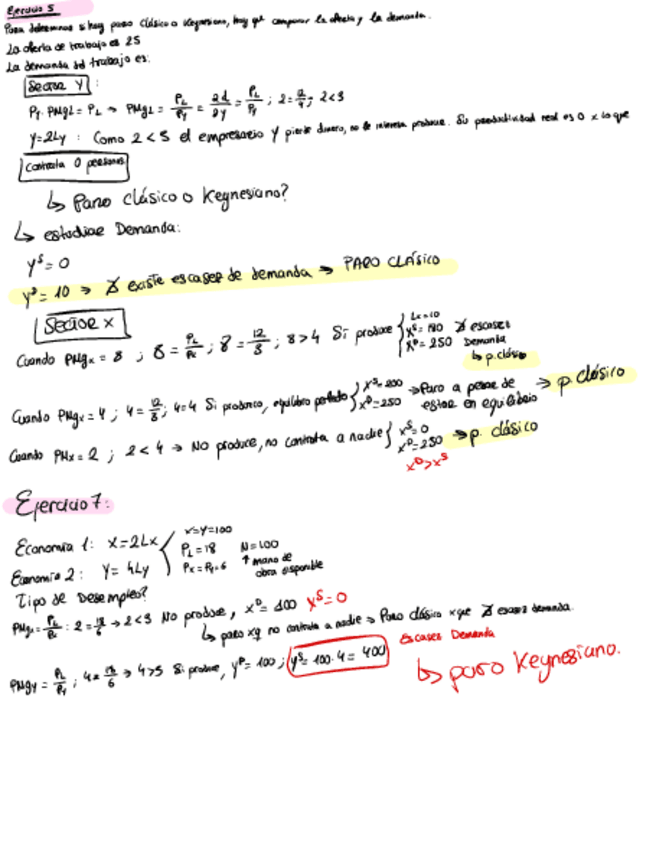 Ejercicio 5
Para determinar si hay paro Clásico o Keynesiano, hay que comparar la oferta y la demanda.
La oferta de trabajo es 25
La demanda del trabajo es:
Sector Y :
Py · PMgL = PL → PMgL = PL/Py = 2d/2y = PL/Py ; 2 < 3
Y = 2Ly : Como 2 < 3 el empresario Y pierde dinero, no le interesa producir. Su productividad real es 0 x lo que
Contrata 0 personas
↳ Paro Clásico o Keynesiano?
↳ estudiar Demanda:
Y^S = 0
Y^D = 10 → ∄ existe escasez de demanda → PARO CLÁSICO
Sector X
Cuando PMgx = 8 ; 8 = PL/Px ; 8 = 12/3 ; 8 > 4 Sí produce { Lx = 10
X^D = 250 ∄ escasez Demanda
↳ p. clásico
Cuando PMgx = 4 ; 4 = 12/3 ; 4 = 4 Sí producirá, equilibrio perfecto { X^S = 200 X^D = 250 → Paro a pesar de estar en equilibrio → p. clásico
Cuando PMx = 2 ; 2 < 4 → NO produce, no contrata a nadie { X^S = 0 X^D = 250 → p. clásico
X^D > X^S
Ejercicio 7:
Economía 1: X = 2Lx { X = Y = 100
Economía 2: Y = 4Ly } PL = 18 N = 100
Px = Py = 6 ↑ mano de obra disponible
Tipo de Desempleo?
PMgx = PL/Px : 2 = 18/6 → 2 < 3 No produce, X^D = 100 X^S = 0
↳ paro xq no contrata a nadie → Paro clásico xque ∄ escasez demanda.
Escasez Demanda
PMgy = PL/Py ; 4 = 18/6 → 4 > 3 Sí produce, Y^D = 100 ; Y^S = 100 · 4 = 400
↳ paro Keynesiano.